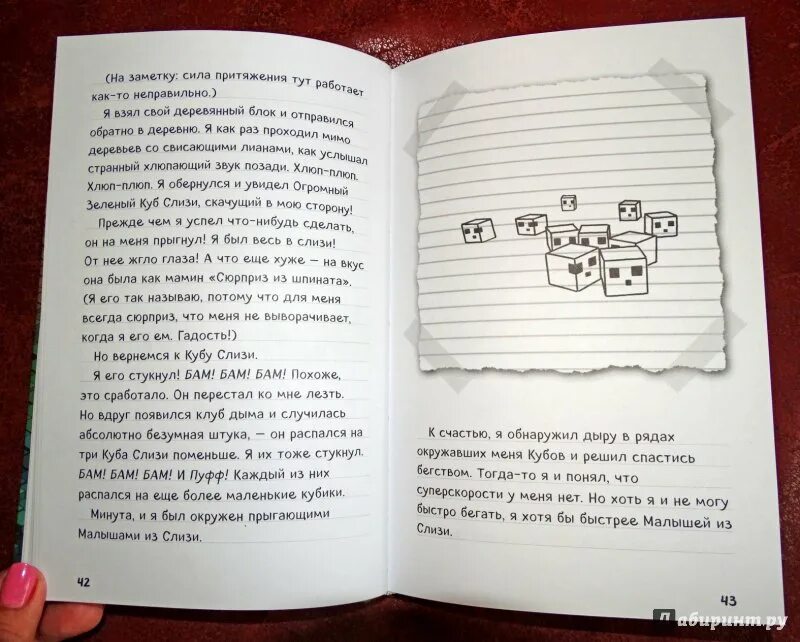 (На заметку: сила притяжения тут работает
как-то неправильно.)
Я взял свой деревянный блок и отправился
обратно в деревню. Я как раз проходил мимо
деревьев со свисающими лианами, как услышал
странный хлюпающий звук позади. Хлюп-плюп.
Хлюп-плюп. Я обернулся и увидел Огромный
Зеленый Куб Слизи, скачущий в мою сторону!
Прежде чем я успел что-нибудь сделать,
он на меня прыгнул! Я был весь в слизи!
От нее жгло глаза! А что еще хуже – на вкус
она была как мамин «Сюрприз из шпината».
(Я его так называю, потому что для меня
всегда сюрприз, что меня не выворачивает,
когда я его ем. Гадость!)
Но вернемся к Кубу Слизи.
Я его стукнул! БАМ! БАМ! БАМ! Похоже,
это сработало. Он перестал ко мне лезть.
Но вдруг появился клуб дыма и случилась
абсолютно безумная штука, – он распался на
три Куба Слизи поменьше. Я их тоже стукнул.
БАМ! БАМ! БАМ! И Пуфф! Каждый из них
распался на еще более маленькие кубики.
Минута, и я был окружен прыгающими
Малышами из Слизи.
42
К счастью, я обнаружил дыру в рядах
окружавших меня Кубов и решил спастись
бегством. Тогда-то я и понял, что
суперскорости у меня нет. Но хоть я и не могу
быстро бегать, я хотя бы быстрее Малышей из
Слизи.
43
Лабиринт.ру